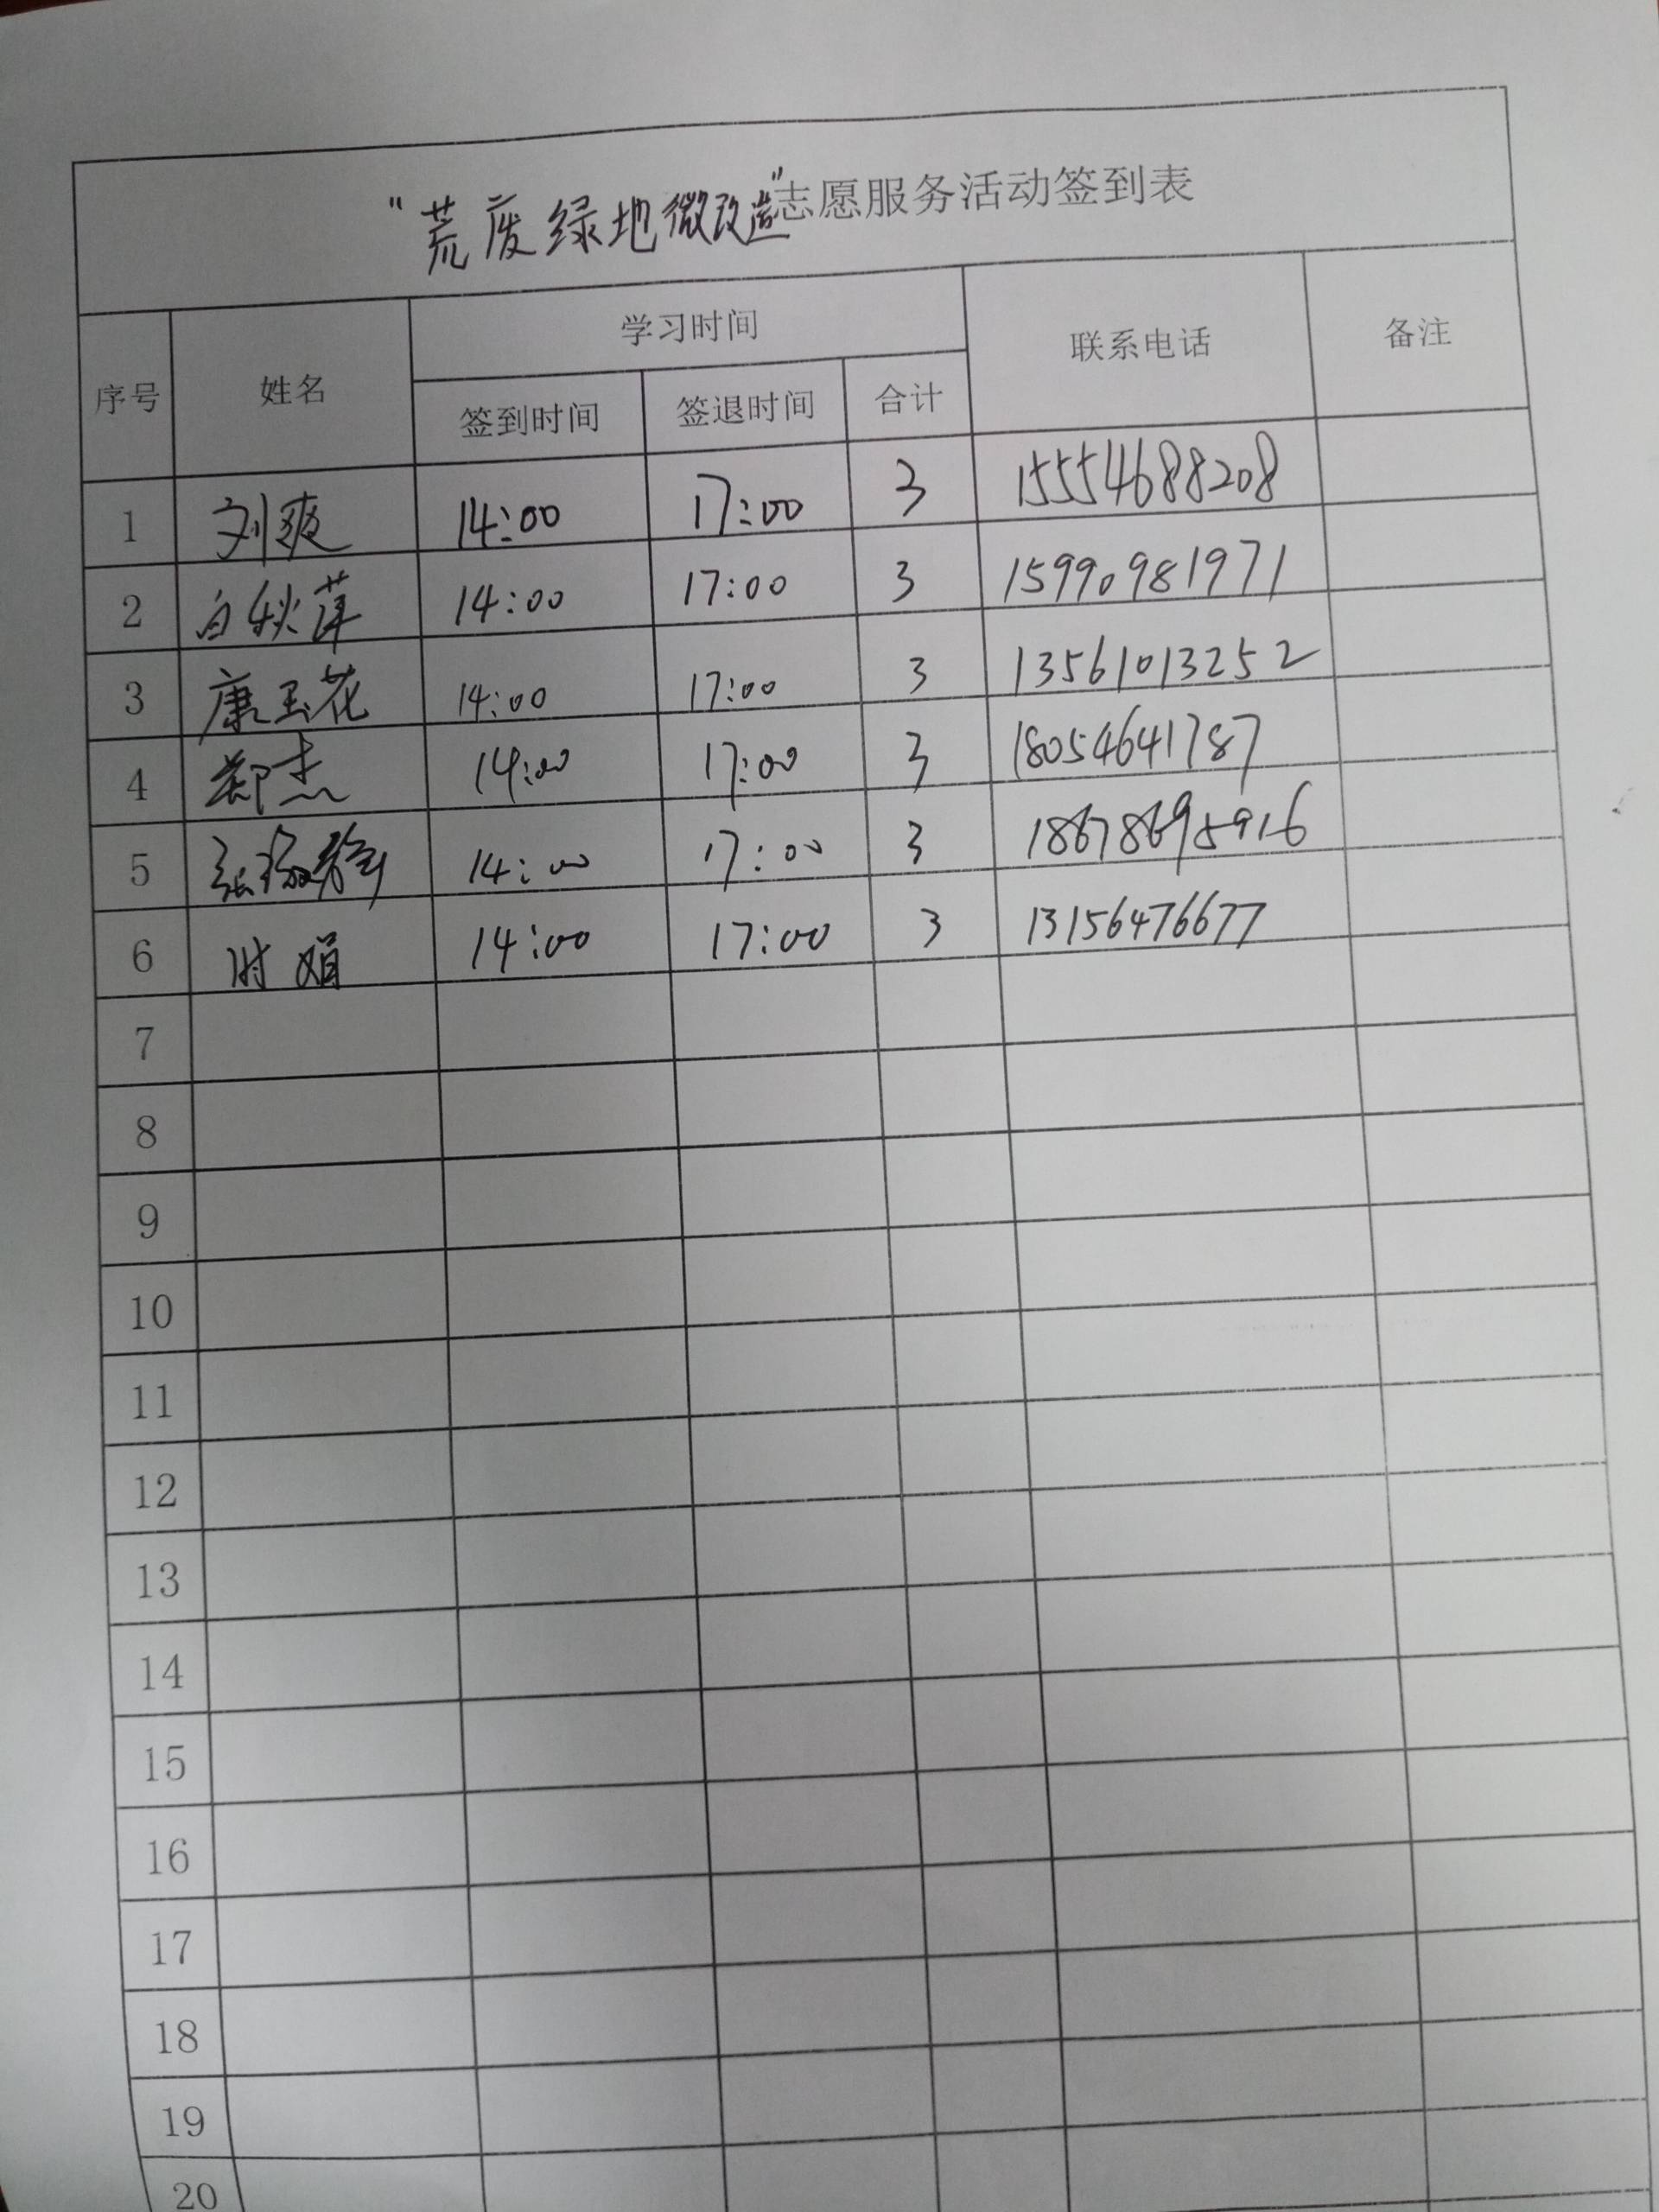 “荒废绿地微改造”志愿服务活动签到表
序号 姓名 学习时间 联系电话 备注
签到时间 签退时间 合计
1 刘爽 14:00 17:00 3 15554688208
2 白秋萍 14:00 17:00 3 15990981971
3 康玉花 14:00 17:00 3 13561013252
4 郑杰 14:00 17:00 3 18054641787
5 张 14:00 17:00 3 18678695916
6 时娟 14:00 17:00 3 13156476677
7
8
9
10
11
12
13
14
15
16
17
18
19
20